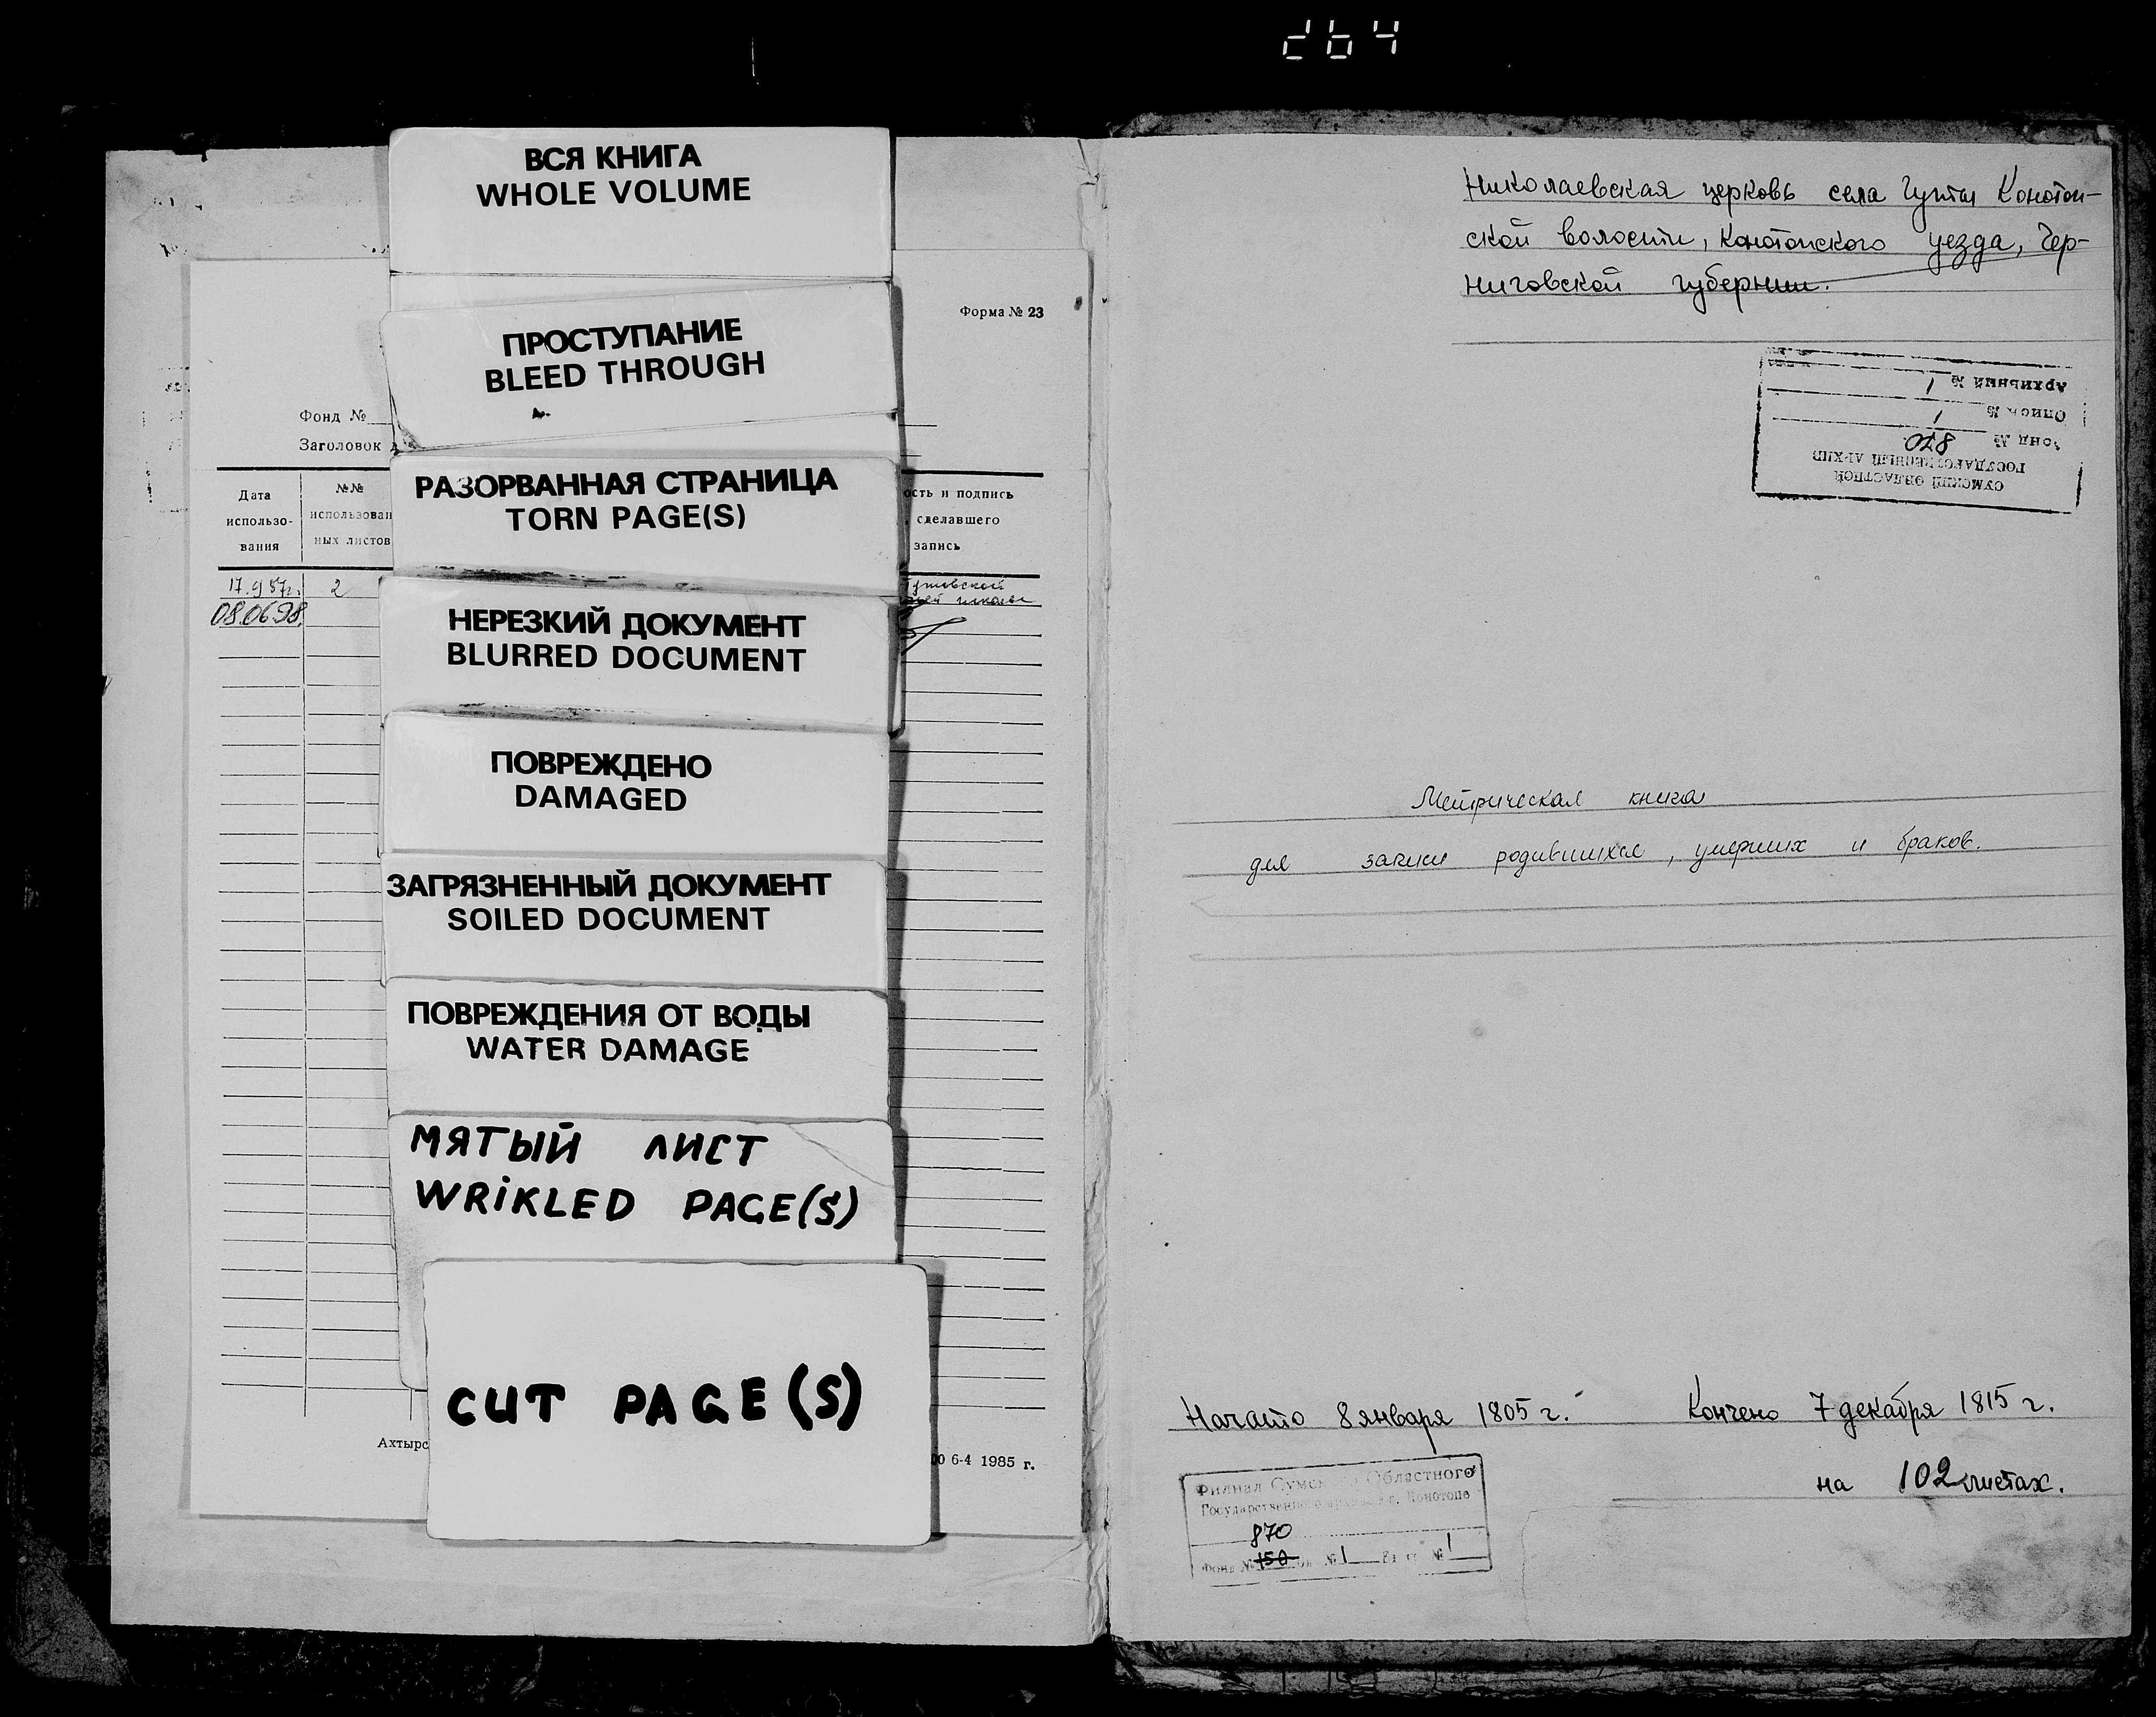 264
ВСЯ КНИГА
WHOLE VOLUME
ПРОСТУПАНИЕ
BLEED THROUGH
РАЗОРВАННАЯ СТРАНИЦА
TORN PAGE(S)
НЕРЕЗКИЙ ДОКУМЕНТ
BLURRED DOCUMENT
ПОВРЕЖДЕНО
DAMAGED
ЗАГРЯЗНЕННЫЙ ДОКУМЕНТ
SOILED DOCUMENT
ПОВРЕЖДЕНИЯ ОТ ВОДЫ
WATER DAMAGE
МЯТЫЙ ЛИСТ
WRIKLED PAGE(S)
CUT PAGE(S)
Форма № 23
Фонд №
Заголовок
Дата
использо-
вания
№№
использован
ных листов
ость и подпись
сделавшего
запись
17.9 87г. 2
08.06.98.
Ахтырс
00 6-4 1985 г.
Николаевская церковь села Гуты Конотоп-
ской волости, Конотопского уезда, Чер-
ниговской губернии.
СУМСКИЙ ОБЛАСТНОЙ
ГОСУДАРСТВЕННЫЙ АРХИВ
Фонд № 870
Опись № 1
Архивный № 1
Метрическая книга
для записи родившихся, умерших и браков.
Начато 8 января 1805 г. Кончено 7 декабря 1815 г.
на 102 листах.
Филиал Сумского Областного
Государственного архива в г. Конотопе
870
Фонд № 150 оп. № 1 № 1